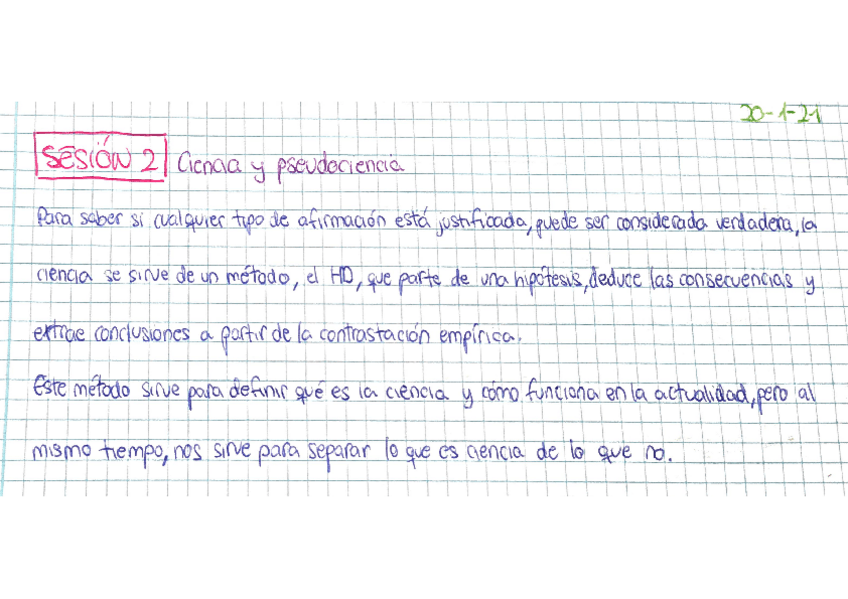 20-1-21
SESIÓN 2 Ciencia y pseudociencia
Para saber si cualquier tipo de afirmación está justificada, puede ser considerada verdadera, la
ciencia se sirve de un método, el HD, que parte de una hipótesis, deduce las consecuencias y
extrae conclusiones a partir de la contrastación empírica.
Este método sirve para definir qué es la ciencia y cómo funciona en la actualidad, pero al
mismo tiempo, nos sirve para separar lo que es ciencia de lo que no.